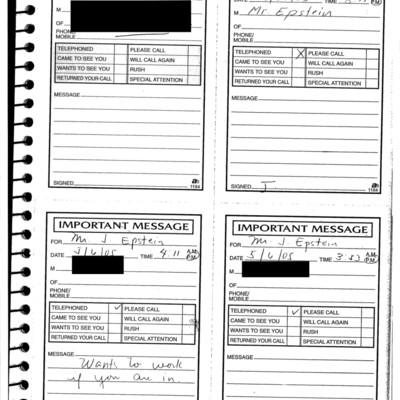 M
OF
PHONE/
MOBILE
TELEPHONED PLEASE CALL
CAME TO SEE YOU WILL CALL AGAIN
WANTS TO SEE YOU RUSH
RETURNED YOUR CALL SPECIAL ATTENTION
MESSAGE
SIGNED
1184
M Mr Epstein
OF
PHONE/
MOBILE
TELEPHONED X PLEASE CALL
CAME TO SEE YOU WILL CALL AGAIN
WANTS TO SEE YOU RUSH
RETURNED YOUR CALL SPECIAL ATTENTION
MESSAGE
SIGNED J
1184
IMPORTANT MESSAGE
FOR Mr. J Epstein
DATE 3/6/05 TIME 4:11 A.M. P.M.
M
OF
PHONE/
MOBILE
TELEPHONED ✓ PLEASE CALL
CAME TO SEE YOU WILL CALL AGAIN
WANTS TO SEE YOU RUSH
RETURNED YOUR CALL SPECIAL ATTENTION
MESSAGE Wants to work
if you are in
IMPORTANT MESSAGE
FOR Mr. J Epstein
DATE 3/6/05 TIME 3:53 A.M. P.M.
M
OF
PHONE/
MOBILE
TELEPHONED ✓ PLEASE CALL
CAME TO SEE YOU WILL CALL AGAIN
WANTS TO SEE YOU RUSH
RETURNED YOUR CALL SPECIAL ATTENTION
MESSAGE